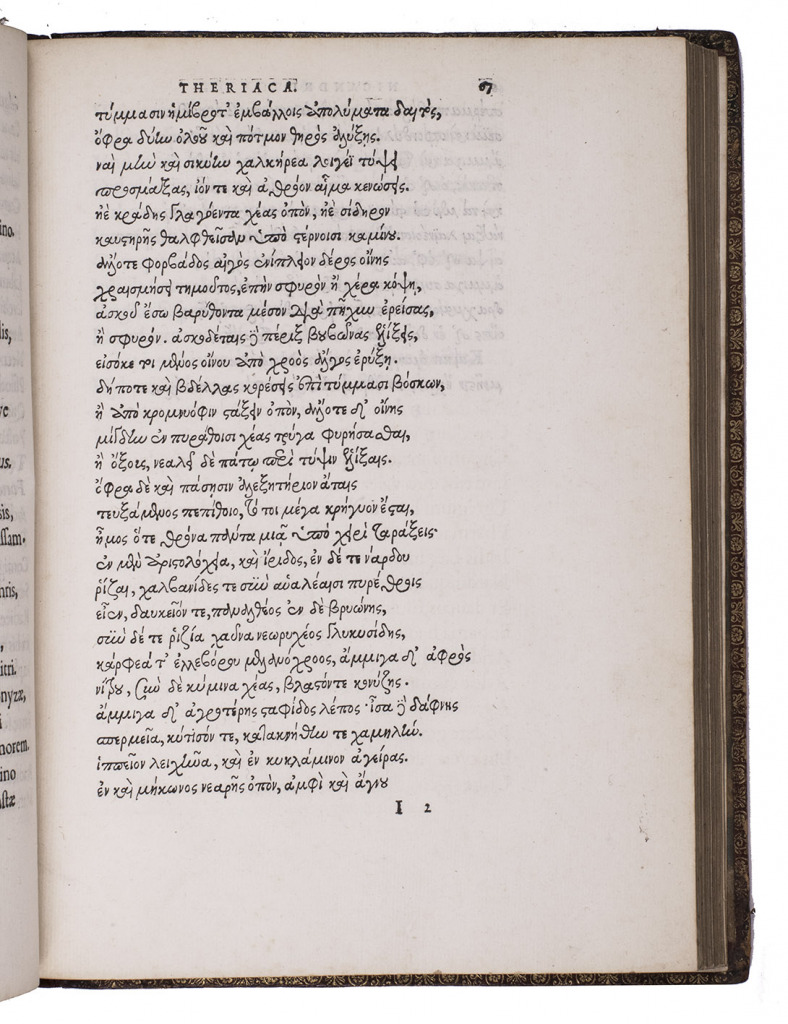 THERIACA. 67
τύμμασιν ἡμίβροτ' ἐμβάλλοις ἀπολύματα δαιτός,
ὄφρα δύην ὀλοοῦ καὶ πότμον θηρὸς ἀλύξῃς.
ναὶ μὴν καὶ σικύην χαλκήρεα λοιγέϊ τύψει
προσμάξας, ἰόν τε καὶ ἀθρόον αἷμα κενώσεις.
ἠὲ κράδης γλαγόεντα χέας ὀπὸν, ἠὲ σίδηρον
καυστηρῆς θαλφθεῖσαν ὑπὸ στέρνοισι καμίνου.
ἄλλοτε φορβάδος αἰγὸς ἐνίπλεον δέρος οἴνης
χραισμήσει τημοῦτος, ἐπὴν σφυρὸν ἢ χέρα κόψῃ,
ἀσκοῦ ἔσω βαρύθοντα μέσον διὰ πῆχυν ἐρείσας,
ἢ σφυρόν. ἀσκοδέταις δὲ πέριξ βουβῶνας ἑλίξεις,
εἰσόκε τοι μένος οἴνου ἀπὸ χροὸς ἄλγος ἐρύξῃ.
δήποτε καὶ βδέλλας κορέσεις ἐπὶ τύμμασι βόσκων,
ἢ ἀπὸ κρομνυόφιν στάξειν ὀπὸν, ἄλλοτε δ' οἴνης
μίγδην ἐν πυράθοισι χέας τρύγα φυρήσασθαι,
ἢ ὄξους, νεαλεῖ δὲ πάτῳ περὶ τύψιν ἑλίξαις.
ὄφρα δὲ καὶ πάσῃσιν ἀλεξητήριον ἄταις
τευξάμενος πεπίθοιο, τό τοι μέγα κρήγυον ἔσται,
ἦμος ὅτε θρόνα πάντα μιᾷ ὑπὸ χειρὶ ταράξεις·
ἐν μὲν ἀριστολόχεια, καὶ ἴριδος, ἐν δέ τε νάρδου
ῥίζαι, χαλβανίδες τε σὺν αὐαλέαισι πυρέθροις
εἶεν, δαυκεῖόν τε, παναλθέος ἐν δὲ βρυώνης,
σὺν δέ τε ῥιζία χαῦνα νεωρυχέος γλυκυσίδης,
κάρφεά τ' ἑλλεβόρου μελανόχροος, ἄμμιγα δ' ἀφρὸς
νίτρου, σὺν δὲ κύμινα χέας, βλαστόν τε κονύζης.
ἄμμιγα δ' ἀγροτέρης σταφίδος λέπος· ἶσα δὲ δάφνης
σπερμεῖα, κύτισόν τε, κατακνήθην τε χαμηλήν.
ἱππεῖον λειχῆνα, καὶ ἐν κυκλάμινον ἀγείρας.
ἐν καὶ μήκωνος νεαρῆς ὀπὸν, ἀμφὶ καὶ ἄγνου
I 2